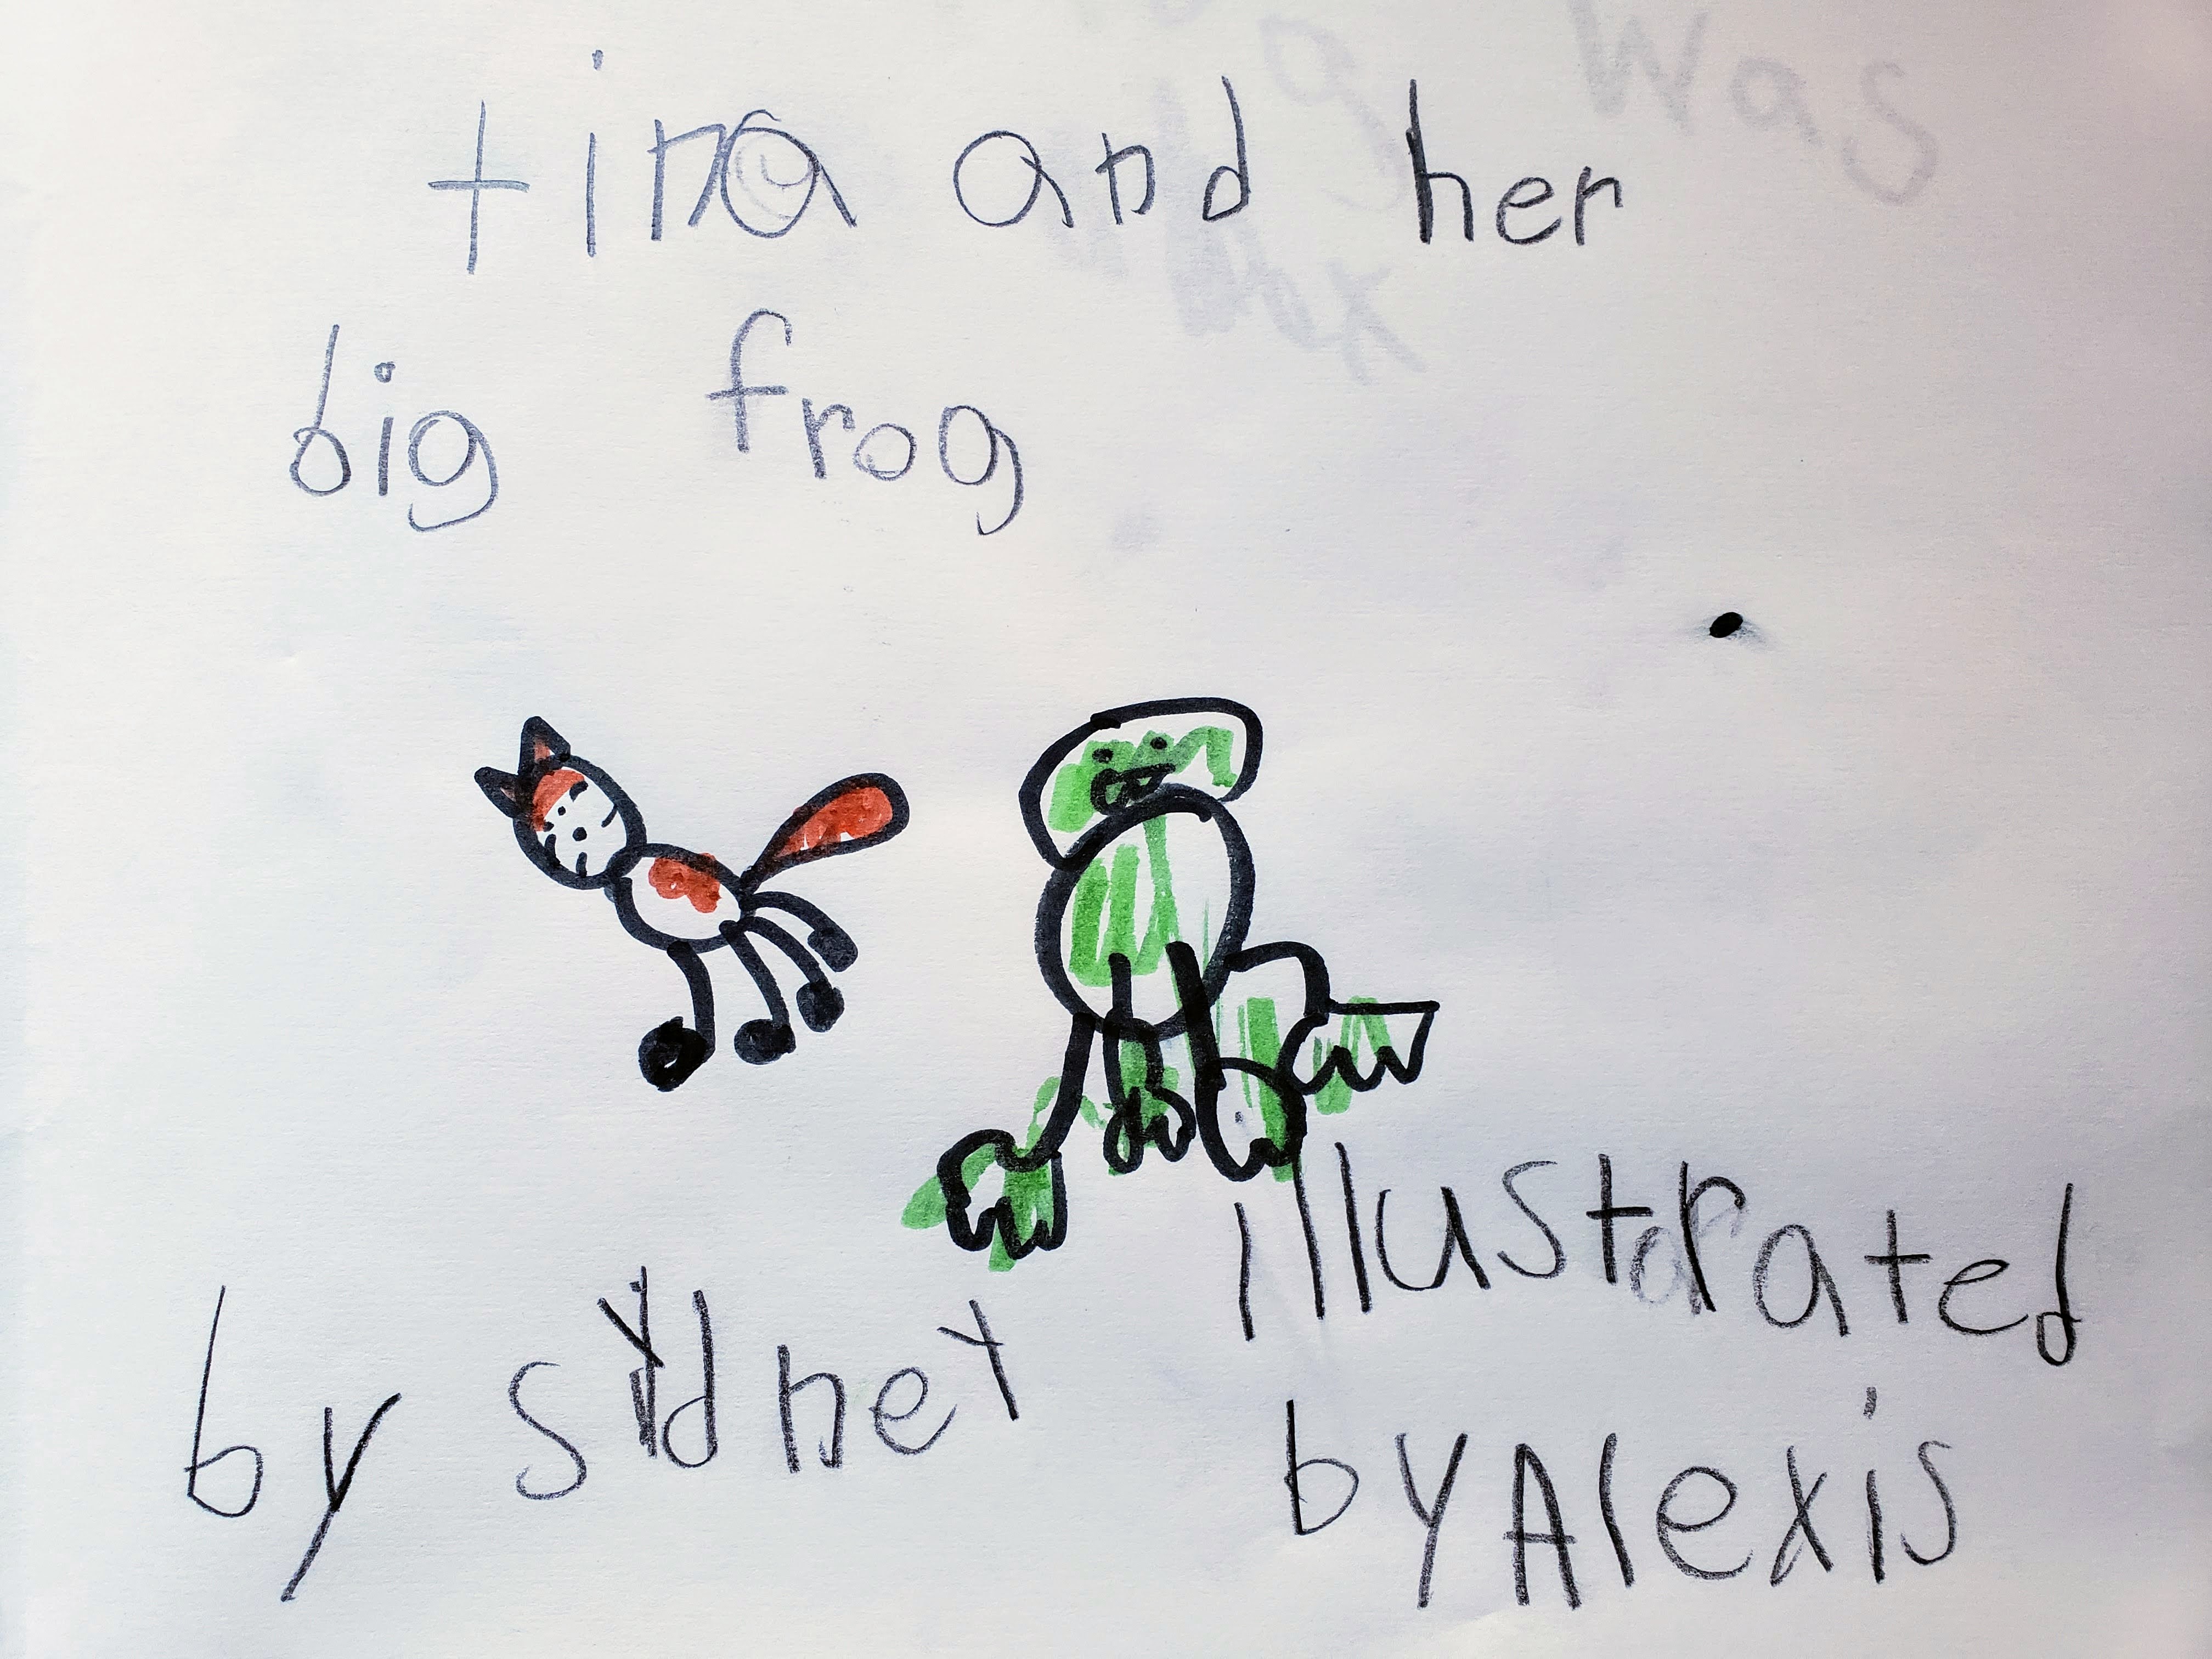 tina and her
big frog
by sydney
illustrated
by Alexis
was